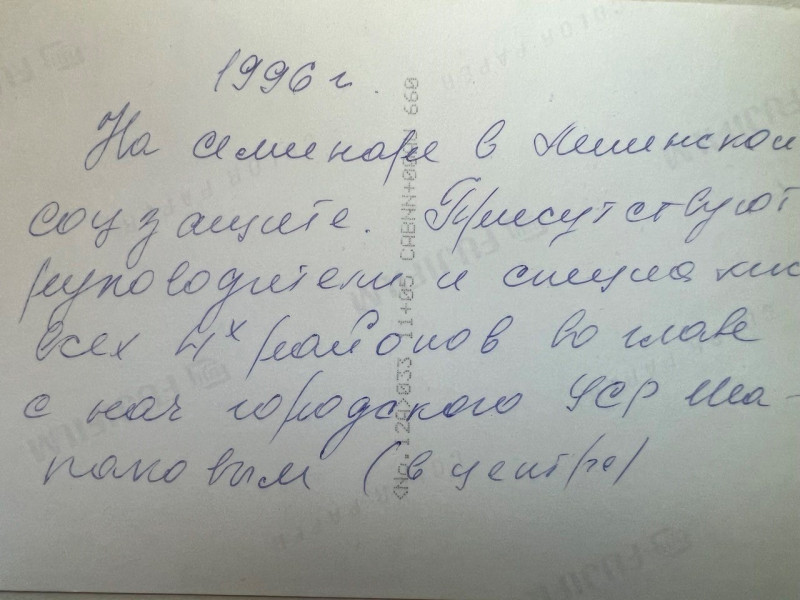 1996 г.
На семинаре в Ленинской
соцзащите. Присутствуют
руководители и специалис
всех 4х районов во главе
с нач городского УСР Ша-
паковым (в центре)
<No.12A>033 11+05 CABNN+00NN 660
FUJIFILM
COLOR PAPER